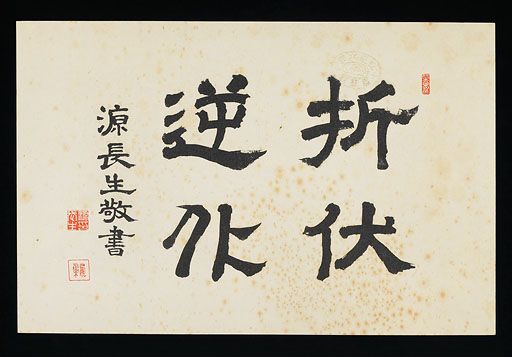 折伏
逆化
源長生敬書